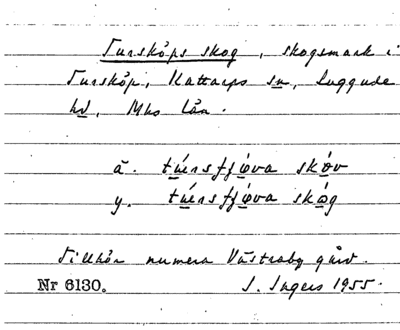 Tursköps skog, skogsmark i
Tursköp, Kattarps sn, Luggude
hd, Mhs län.
ä. túersffǿva skǿv
y. túersffǿva skǿg
Tillhör numera Västraby gård.
Nr 6130. I. Ingers 1955.